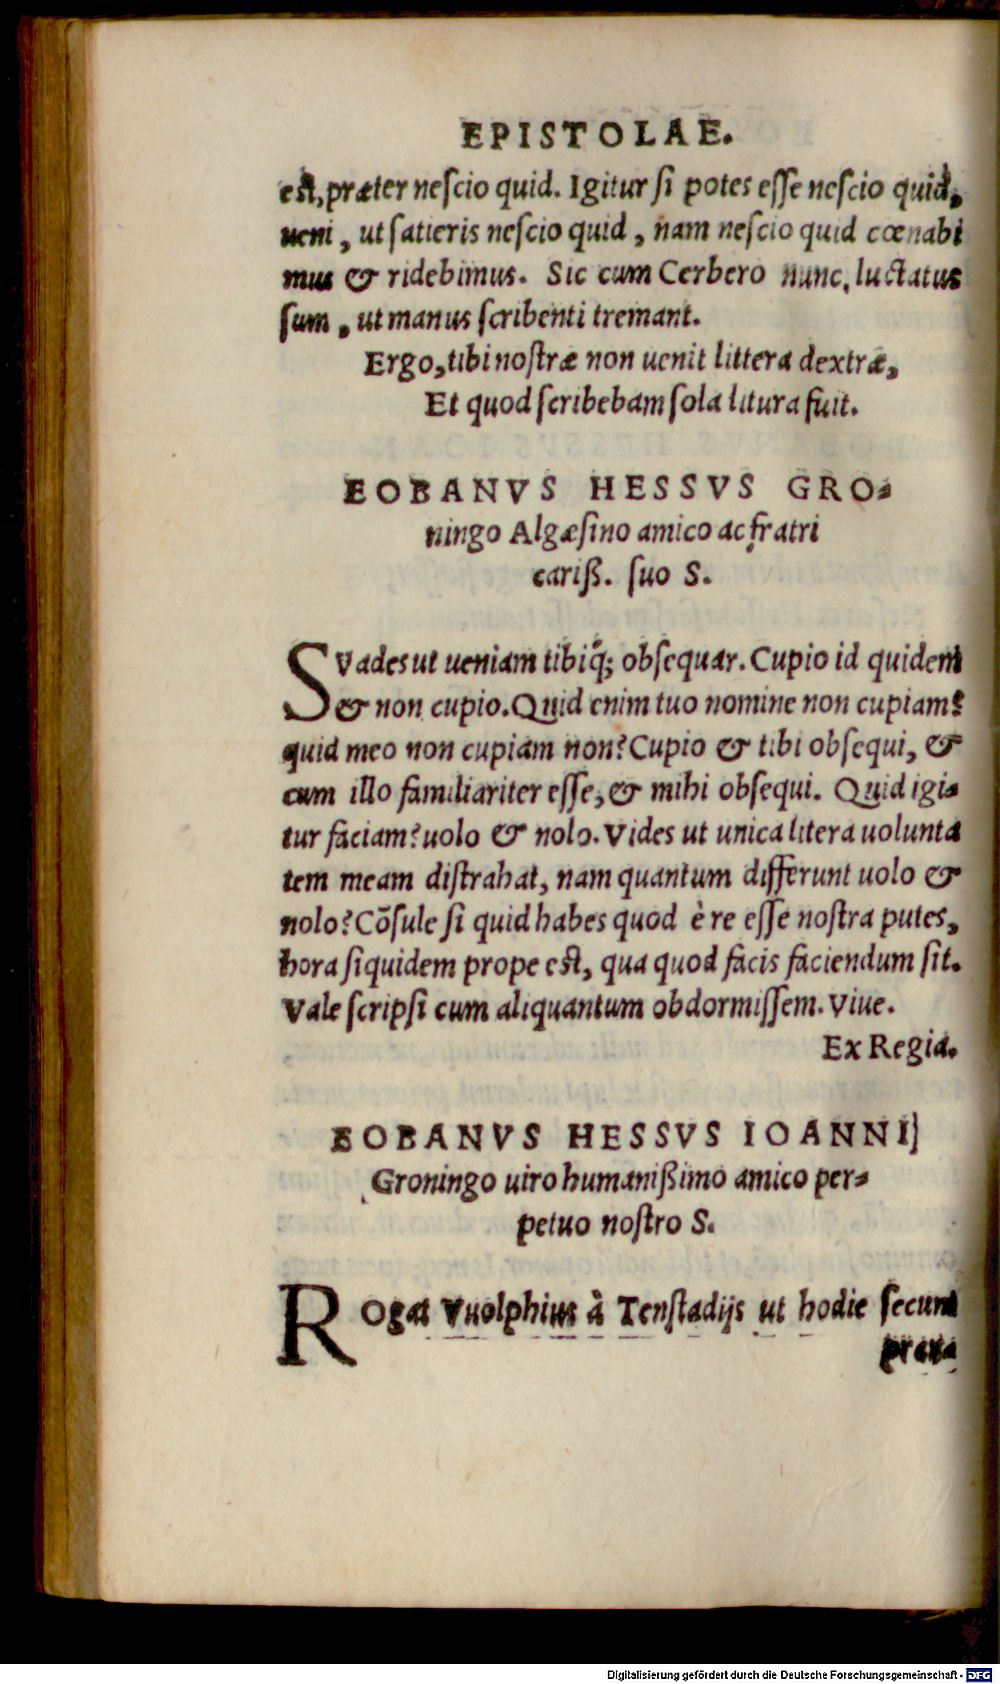 EPISTOLAE.
est, præter nescio quid. Igitur si potes esse nescio quid,
ueni, ut satieris nescio quid, nam nescio quid cœnabi
mus & ridebimus. Sic cum Cerbero nunc, luctatus
sum, ut manus scribenti tremant.
Ergo, tibi nostræ non uenit littera dextræ,
Et quod scribebam sola litura fuit.
EOBANVS HESSVS GRO-
ningo Algæsino amico ac fratri
cariß. suo S.
SVades ut ueniam tibiq́; obsequar. Cupio id quidem
& non cupio. Quid enim tuo nomine non cupiam?
quid meo non cupiam non? Cupio & tibi obsequi, &
cum illo familiariter esse, & mihi obsequi. Quid igi-
tur faciam? uolo & nolo. Vides ut unica litera uolunta
tem meam distrahat, nam quantum differunt uolo &
nolo? Cōsule si quid habes quod è re esse nostra putes,
hora siquidem prope est, qua quod facis faciendum sit.
Vale scripsi cum aliquantum obdormissem. Viue.
Ex Regia.
EOBANVS HESSVS IOANNI
Groningo uiro humanißimo amico per-
petuo nostro S.
ROgat Vuolphius à Tenstadijs ut hodie secum
Digitalisierung gefördert durch die Deutsche Forschungsgemeinschaft - DFG